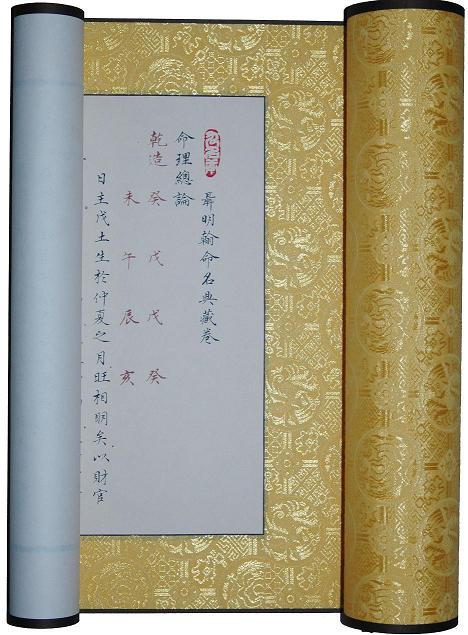 聶明翰命名典藏卷
命理總論
乾造 癸 戊 戊 癸
未 午 辰 亥
日主戊土生於仲夏之月旺相明矣以財官